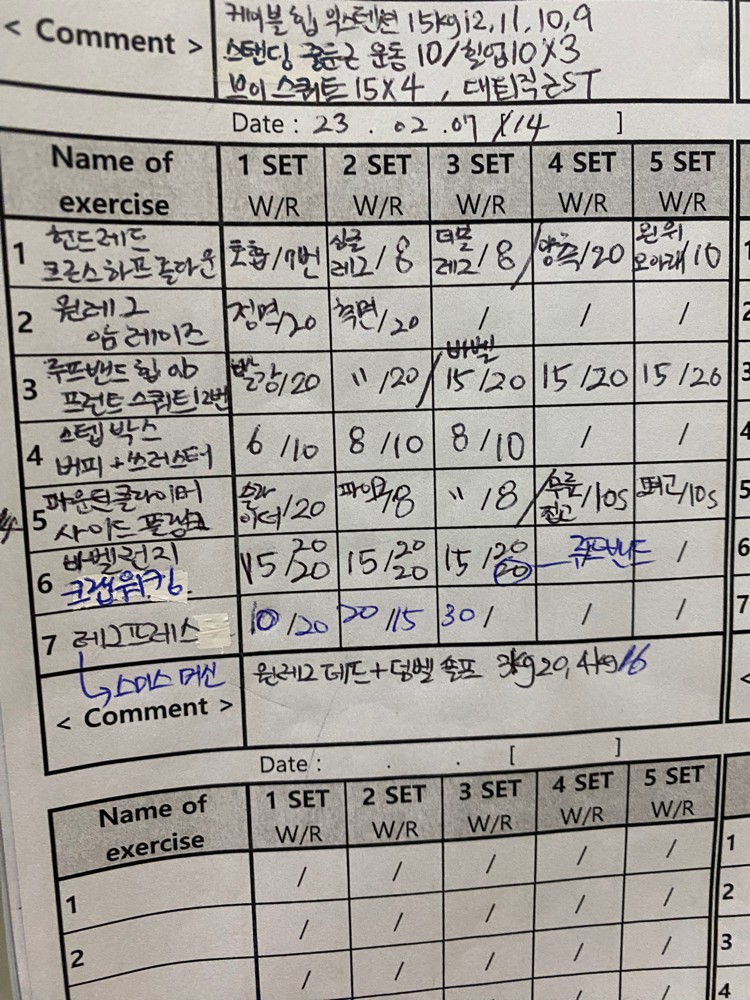 케이블 힙 익스텐션 15kg 12, 11, 10, 9
< Comment > 스탠딩 중둔근 운동 10/힐업10X3
브이 스쿼트 15X4 , 대퇴직근ST
Date : 23 . 02 . 07 /14 ]
Name of exercise 1 SET W/R 2 SET W/R 3 SET W/R 4 SET W/R 5 SET W/R
1 헌드레드 호흡/7번 싱글레그/8 더블레그/8 양측/20 왼위오아래/10
크리스하프롤다운
2 원레그 정면/20 측면/20 / / /
암레이즈
3 루프밴드 힙 abd 빨강/20 〃/20 바벨 15/20 15/20 15/20
프런트 스쿼트12번
4 스텝박스 6/10 8/10 8/10 / /
버피+쓰러스터
5 마운틴클라이머 슬라이더/20 파이크/8 〃/8 무릎접고/10s 펴고/10s
사이드 플랭크
6 바벨런지 15/20 20 15/20 20 15/20 20 루프밴드 /
크랩워킹
7 레그프레스 10/20 20/15 30/ / /
↳스미스 머신
< Comment > 원레그 데드+덤벨 숄프 3kg20, 4kg16
Date : . . [ ]
Name of exercise 1 SET W/R 2 SET W/R 3 SET W/R 4 SET W/R 5 SET W/R
1 / / / / /
2 / / / / /
/ / / / /